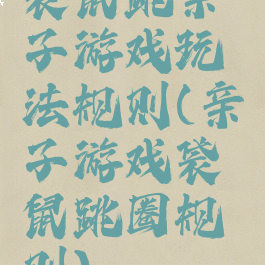 袋鼠跳亲
子游戏玩
法规则(亲
子游戏袋
鼠跳圈规
则)